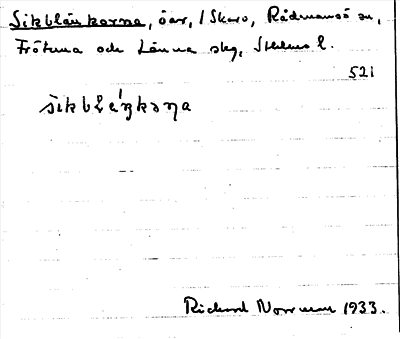 Sikblänkorna, öar, i Skaro, Rådmansö sn,
Frötuna och Länna skg, Sthlms l.
521
sikbläŋkoṇa
Richard Norrman 1933.